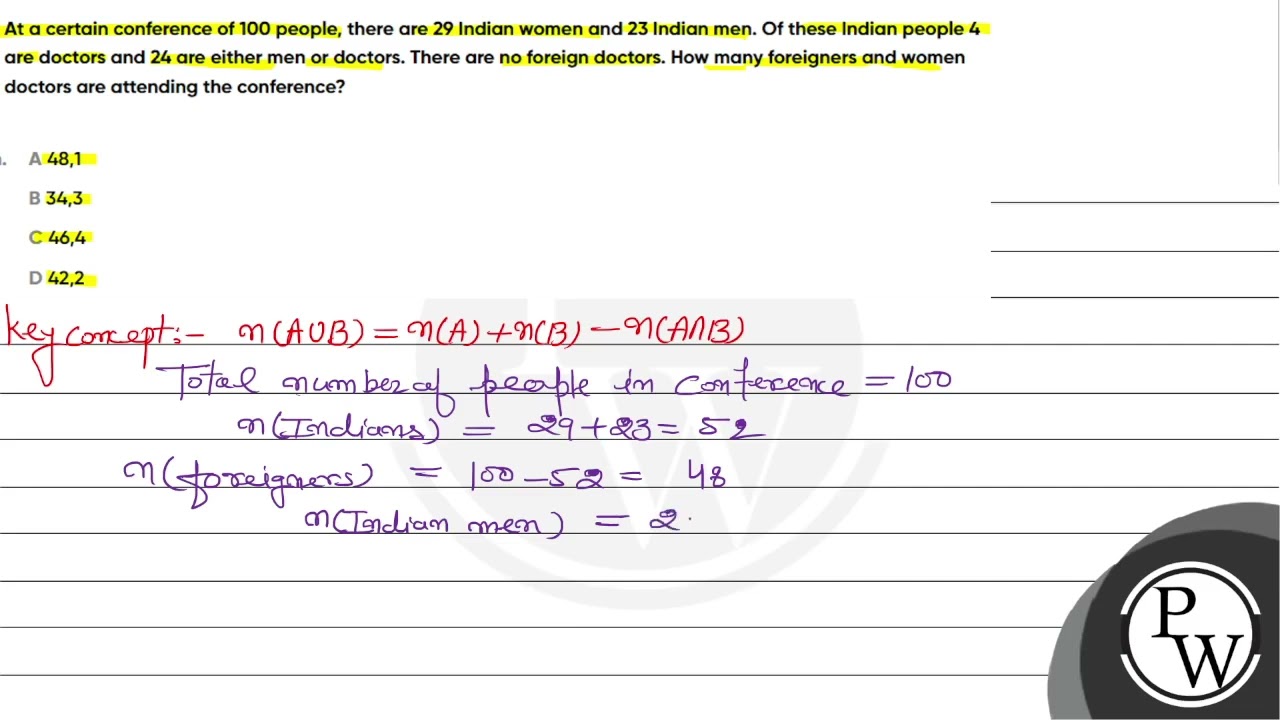 At a certain conference of 100 people, there are 29 Indian women and 23 Indian men. Of these Indian people 4
are doctors and 24 are either men or doctors. There are no foreign doctors. How many foreigners and women
doctors are attending the conference?
A 48,1
B 34,3
C 46,4
D 42,2
Key concept:- n(A∪B) = n(A) + n(B) - n(A∩B)
Total number of people in conference = 100
n(Indians) = 29+23 = 52
n(foreigners) = 100-52 = 48
n(Indian men) = 2
P
W